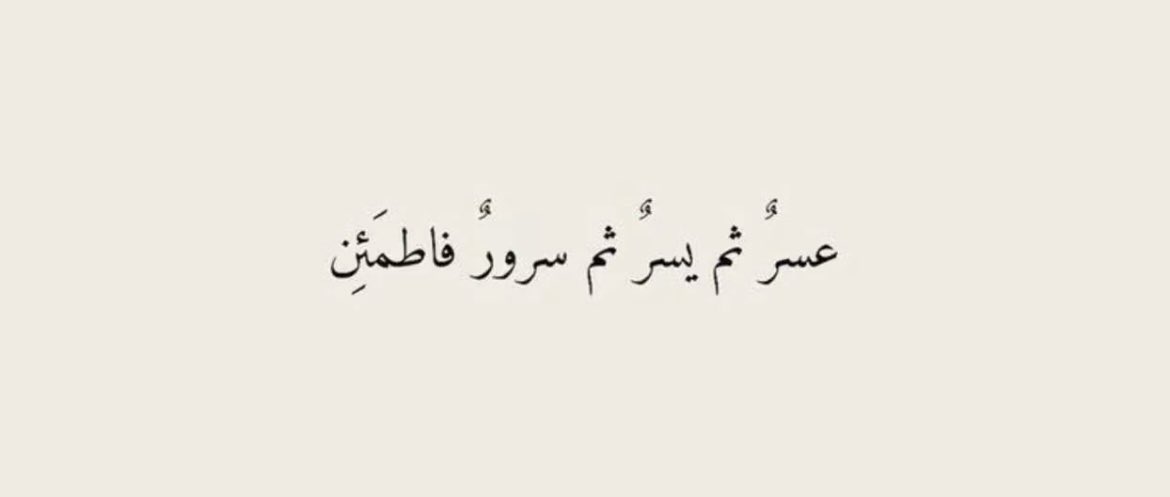 عسرٌ ثم يسرٌ ثم سرورٌ فاطمَئِن